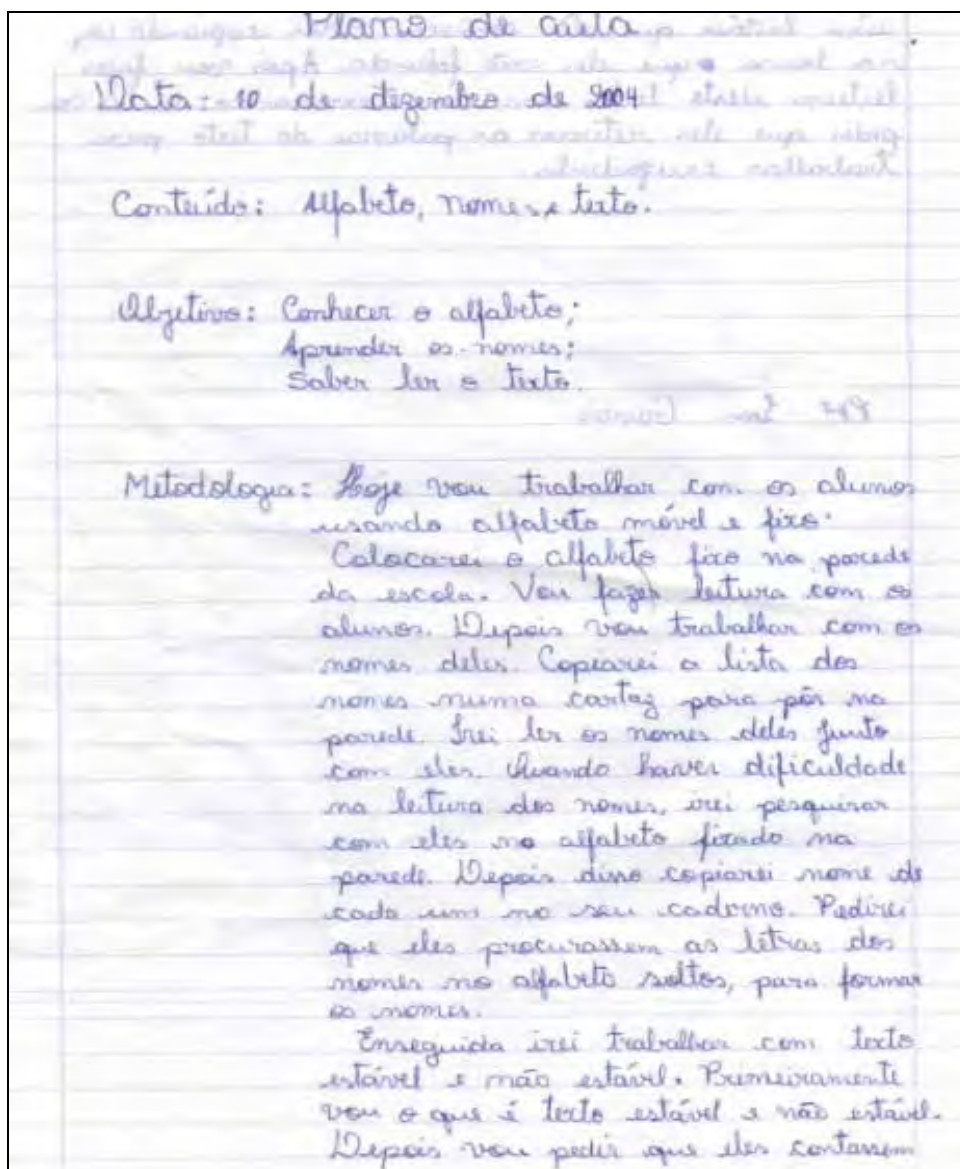 Plano de aula
Data: 10 de dezembro de 2004
Conteúdo: Alfabeto, nomes, e texto.
Objetivo: Conhecer o alfabeto;
Aprender os nomes;
Saber ler o texto.
Metodologia: Hoje vou trabalhar com os alunos
usando alfabeto móvel e fixo.
Colocarei o alfabeto fixo na parede
da escola. Vou fazer leitura com os
alunos. Depois vou trabalhar com os
nomes deles. Copiarei a lista dos
nomes numa cartaz para pôr na
parede. Irei ler os nomes deles junto
com eles. Quando haver dificuldade
na leitura dos nomes, irei pesquisar
com eles no alfabeto fixado na
parede. Depois disso copiarei nome de
cada um no seu caderno. Pedirei
que eles procurassem as letras dos
nomes no alfabeto soltos, para formar
os nomes.
Enseguida irei trabalhar com texto
estável e não estável. Primeiramente
vou o que é texto estável e não estável.
Depois vou pedir que eles contassem